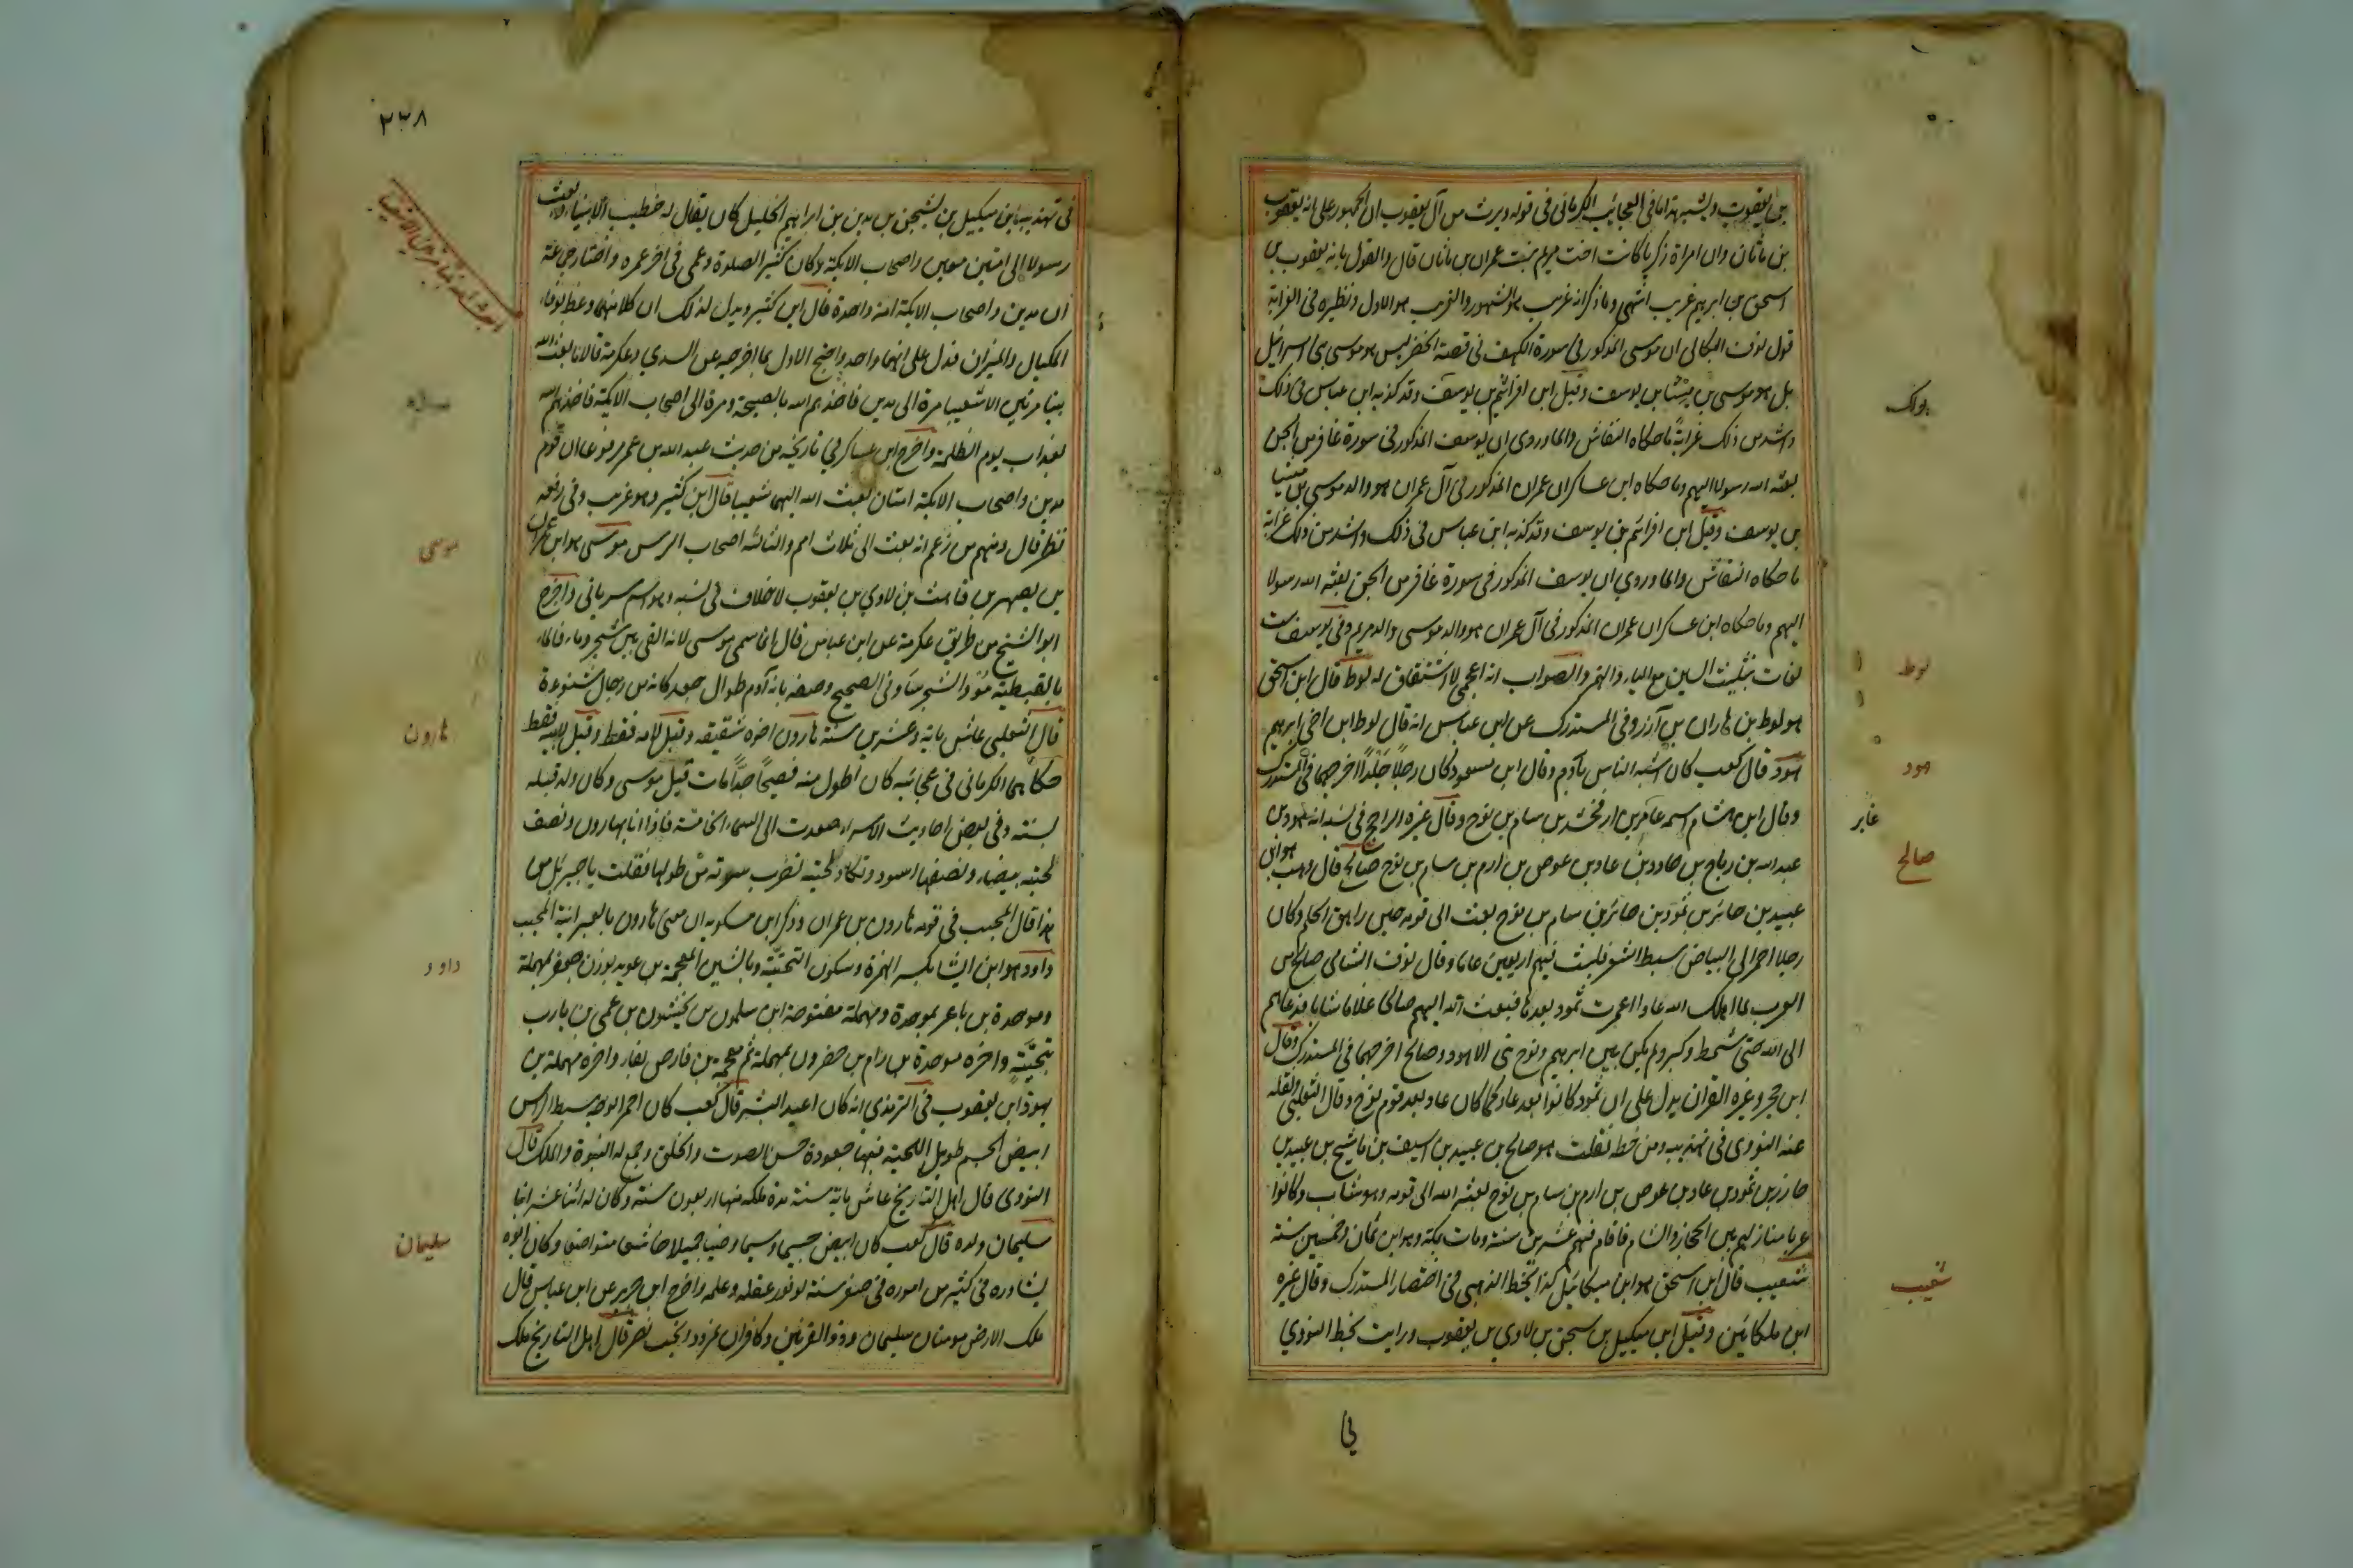 بن يعقوب ويشبه هذا ما فى العجائب للكرمانى فى قوله ويرث من آل يعقوب ان الجمهور على انه يعقوب
بن ماثان وان امراة زكريا كانت اخت مريم بنت عمران بن ماثان قال والقول بانه يعقوب بن
اسحق بن ابراهيم غريب انتهى وما ذكر انه غريب هو المشهور والغريب هو الاول ونظيره فى الغرابة
قول نوف البكالى ان موسى المذكور فى سورة الكهف فى قصة الخضر ليس هو موسى بنى اسرائيل
بل هو موسى بن ميشا بن يوسف وقيل ابن افرائيم بن يوسف وقد كذبه ابن عباس فى ذلك
واشد من ذلك غرابة ما حكاه النقاش والماوردى ان يوسف المذكور فى سورة غافر من الجن
بعثه الله رسولا اليهم وما حكاه ابن عساكر ان عمران المذكور فى آل عمران هو والد موسى بن ميشا
بن يوسف وقيل ابن افرائم بن يوسف وقد كذبه ابن عباس فى ذلك واشد من ذلك غرابة
ما حكاه النقاش والماوردي ان يوسف المذكور فى سورة غافر من الجن بعثه الله رسولا
اليهم وما حكاه ابن عساكر ان عمران المذكور فى آل عمران هو والد موسى والد مريم وفى يوسف ست
لغات بتثليث السين مع الياء والهمز والصواب انه اعجمى لا اشتقاق له لوط قال ابن اسحق
هو لوط بن هاران بن آزر وفى المستدرك عن ابن عباس انه قال لوط ابن اخى ابرهيم
هود قال كعب كان اشبه الناس بآدم وقال ابن مسعود كان رجلا جلدا اخرجهما فى المستدرك
وقال ابن هشام اسمه عابر بن ارفخشد بن سام بن نوح وقال غيره الراجح فى نسبه انه هود بن
عبد الله بن رباح بن حاود بن عاد بن عوص بن ارم بن سام بن نوح صالح قال وهب هو ابن
عبيد بن حائر بن ثمود بن حائر بن سام بن نوح بعث الى قومه حين راهق الحلم وكان
رجلا احمر الى البياض سبط الشعر فلبث فيهم اربعين عاما وقال نوف الشامى صالح من
العرب لما اهلك الله عادا اعمرت ثمود بعدها فبعث الله اليهم صالحا غلاما شابا فدعاهم
الى الله حتى شمط وكبر ولم يكن بين ابرهيم ونوح نبى الا هود وصالح اخرجهما فى المستدرك وقال
ابن حجر وغيره القران يدل على ان ثمود كانوا بعد عاد كما كان عاد بعد قوم نوح وقال الثعلبى ونقله
عنه النووى فى تهذيبه ومن خطه نقلت هو صالح بن عبيد بن اسيف بن ماشيح بن عبيد بن
حازر بن ثمود بن عاد بن عوص بن ارم بن سام بن نوح بعثه الله الى قومه وهو شاب وكانوا
عربا منازلهم بين الحجاز والشام فاقام فيهم عشرين سنة ومات بمكة وهو ابن ثمان وخمسين سنة
شعيب قال ابن اسحق هو ابن ميكائيل كذا بخط الذهبى فى اختصار المستدرك وقال غيره
ابن ملكائين وقيل ابن ميكيل بن يسجن بن لاوي بن يعقوب ورايت بخط النووي
يوسف
لوط
هود
عابر
صالح
شعيب
فى
٢٣٨
فى تهذيبه ابن ميكيل بن يشجن بن مدين بن ابراهيم الخليل كان يقال له خطيب الانبياء وبعث
رسولا الى امتين مدين واصحاب الايكة وكان كثير الصلوة وعمى فى اخر عمره واختار جماعة
ان مدين واصحاب الايكة امة واحدة قال ابن كثير ويدل لذلك ان كلا منهما وعظ بوفاء
المكيال والميزان فدل على انهما واحد واحتج الاول بما اخرجه عن السدي وعكرمة قالا ما بعث الله
نبيا مرتين الا شعيبا مرة الى مدين فاخذهم الله بالصيحة ومرة الى اصحاب الايكة فاخذهم الله
بعذاب يوم الظلة واخرج ابن عساكر فى تاريخه من حديث عبد الله بن عمر مرفوعا ان قوم
مدين واصحاب الايكة امتان بعث الله اليهما شعيبا قال ابن كثير وهو غريب وفى رفعه
نظر قال ومنهم من زعم انه بعث الى ثلاث امم والثالثة اصحاب الرس موسى هو ابن عمران
بن يصهر بن قاهث بن لاوي بن يعقوب لا خلاف فى نسبه وهو اسم سريانى واخرج
ابو الشيخ من طريق عكرمة عن ابن عباس قال انما سمى موسى لانه القى بين شجر وماء فالماء
بالقبطية مو والشجر سا وفى الصحيح وصفه بانه آدم طوال جعد كانه من رجال شنوءة
قال الثعلبى عاش ماية وعشرين سنة هارون اخوه شقيقه وقيل لامه فقط وقيل لابيه فقط
حكاهما الكرمانى فى عجائبه كان اطول منه فصيحا جدا مات قبل موسى وكان ولد قبله
بسنة وفى بعض احاديث الاسراء صعدت الى السماء الخامسة فاذا انا بهارون ونصف
لحيته بيضاء ونصفها اسود وتكاد لحيته تضرب سرته من طولها فقلت يا جبريل من
هذا قال المحبب فى قومه هارون بن عمران وذكر ابن مسكويه ان معنى هارون بالعبرانية المحبب
داود هو ابن ايشا بكسر الهمزة وسكون التحتية وبالشين المعجمة بن عوبد بوزن جعفر بمهملة
وموحدة بن باعر بموحدة ومهملة مفتوحة ابن سلمون بن نخشون بن عمى بن يارب
بتحتية واخره موحدة بن رام بن حضرون بمهملة ثم معجمة بن فارص بفاء واخره مهملة بن
يهوذا بن يعقوب فى الترمذى انه كان اعبد البشر قال كعب كان احمر الوجه سبط الراس
ابيض الجسم طويل اللحية فيها جعودة حسن الصوت والخلق وجمع له النبوة والملك قال
النووى قال اهل التاريخ عاش ماية سنة مدة ملكه منها اربعون سنة وكان له اثنا عشر ابنا
سليمان ولده قال كعب كان ابيض جسيما وسيما وضيا جميلا خاشعا متواضعا وكان ابوه
يشاوره فى كثير من اموره فى صغر سنه لوفور عقله وعلمه واخرج ابن جبير عن ابن عباس قال
ملك الارض مومنان سليمان وذو القرنين وكافران نمرود وبخت نصر قال اهل التاريخ ملك
موسى
هارون
داود
سليمان